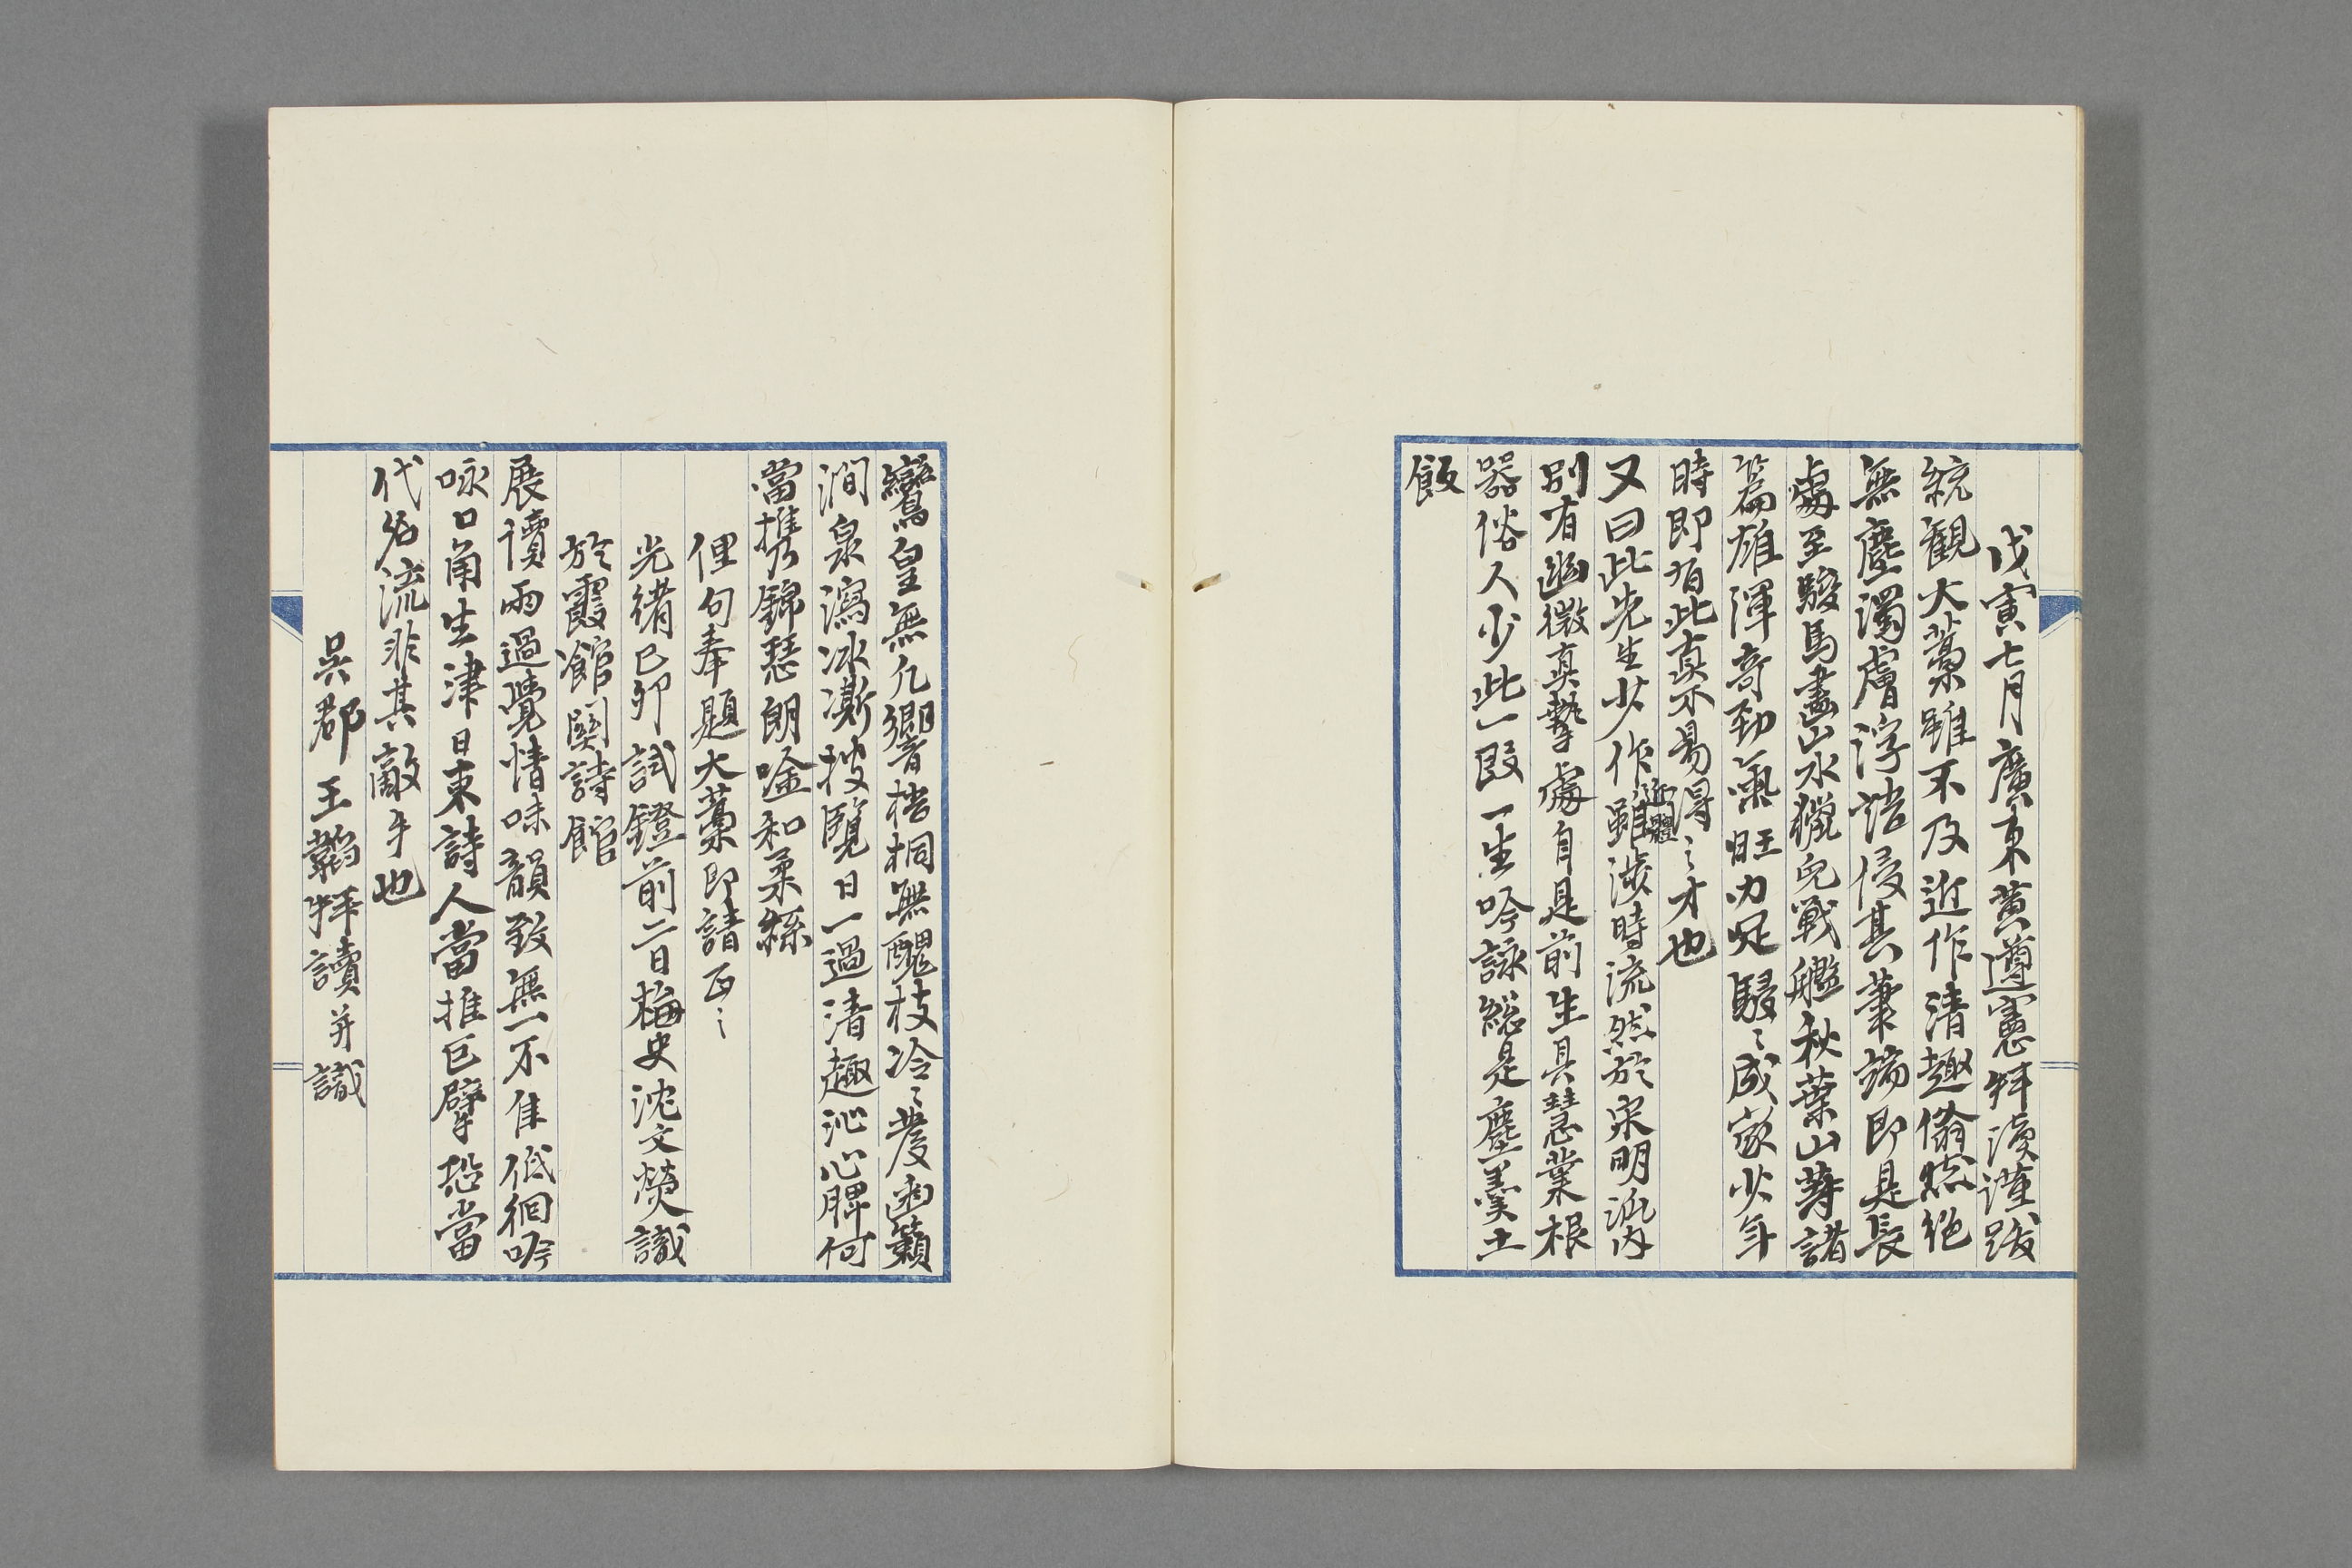 戊寅七月廣東黃遵憲拜讀謹跋
統觀大藁雖不及近作清趣翛然絕
無塵濁膚浮語侵其筆端即是長
處至駿馬畫山水獵兔戰艦秋葉山等諸
篇雄渾奇勁氣旺力足駸〻成家少年
時即有此真不易得〻才也
又曰此先生少作近體雖涉時流然於宋明派內
別有幽微真摯處自是前生具慧業根
器俗人少此一段一生吟詠總是塵羹土
飯
鸞皇無凡響梧桐無醜枝冷〻發幽籟
澗泉瀉冰澌披覽日一過清趣沁心脾何
當攜錦瑟朗唫和柔絲
俚句奉題大藁即請正〻
光緒己卯試鐙前二日梅史沈文熒識
於霞館閟詩館
展讀兩過覺情味韻致無一不佳低徊吟
咏口角生津日東詩人當推巨擘恐當
代名流非其敵手也
吳郡王韜拜讀并識